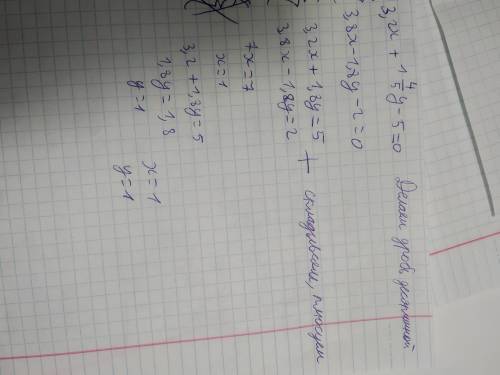 3,2x + 1 4/5 y - 5 = 0 Делаем дробь десятичной
3,8x - 1,8y - 2 = 0
3,2x + 1,8y = 5
3,8x - 1,8y = 2 + складываем, плюсуем
7x = 7
x = 1
3,2 + 1,8y = 5
1,8y = 1,8 x = 1
y = 1 y = 1